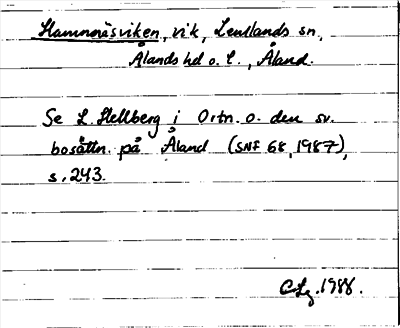 Hamnnäsviken, vik, Lemlands sn,
Ålands hd o. l., Åland.
Se L. Hellberg i Ortn. o. den sv.
bosättn. på Åland (SNF 68, 1987),
s. 243.
1988.